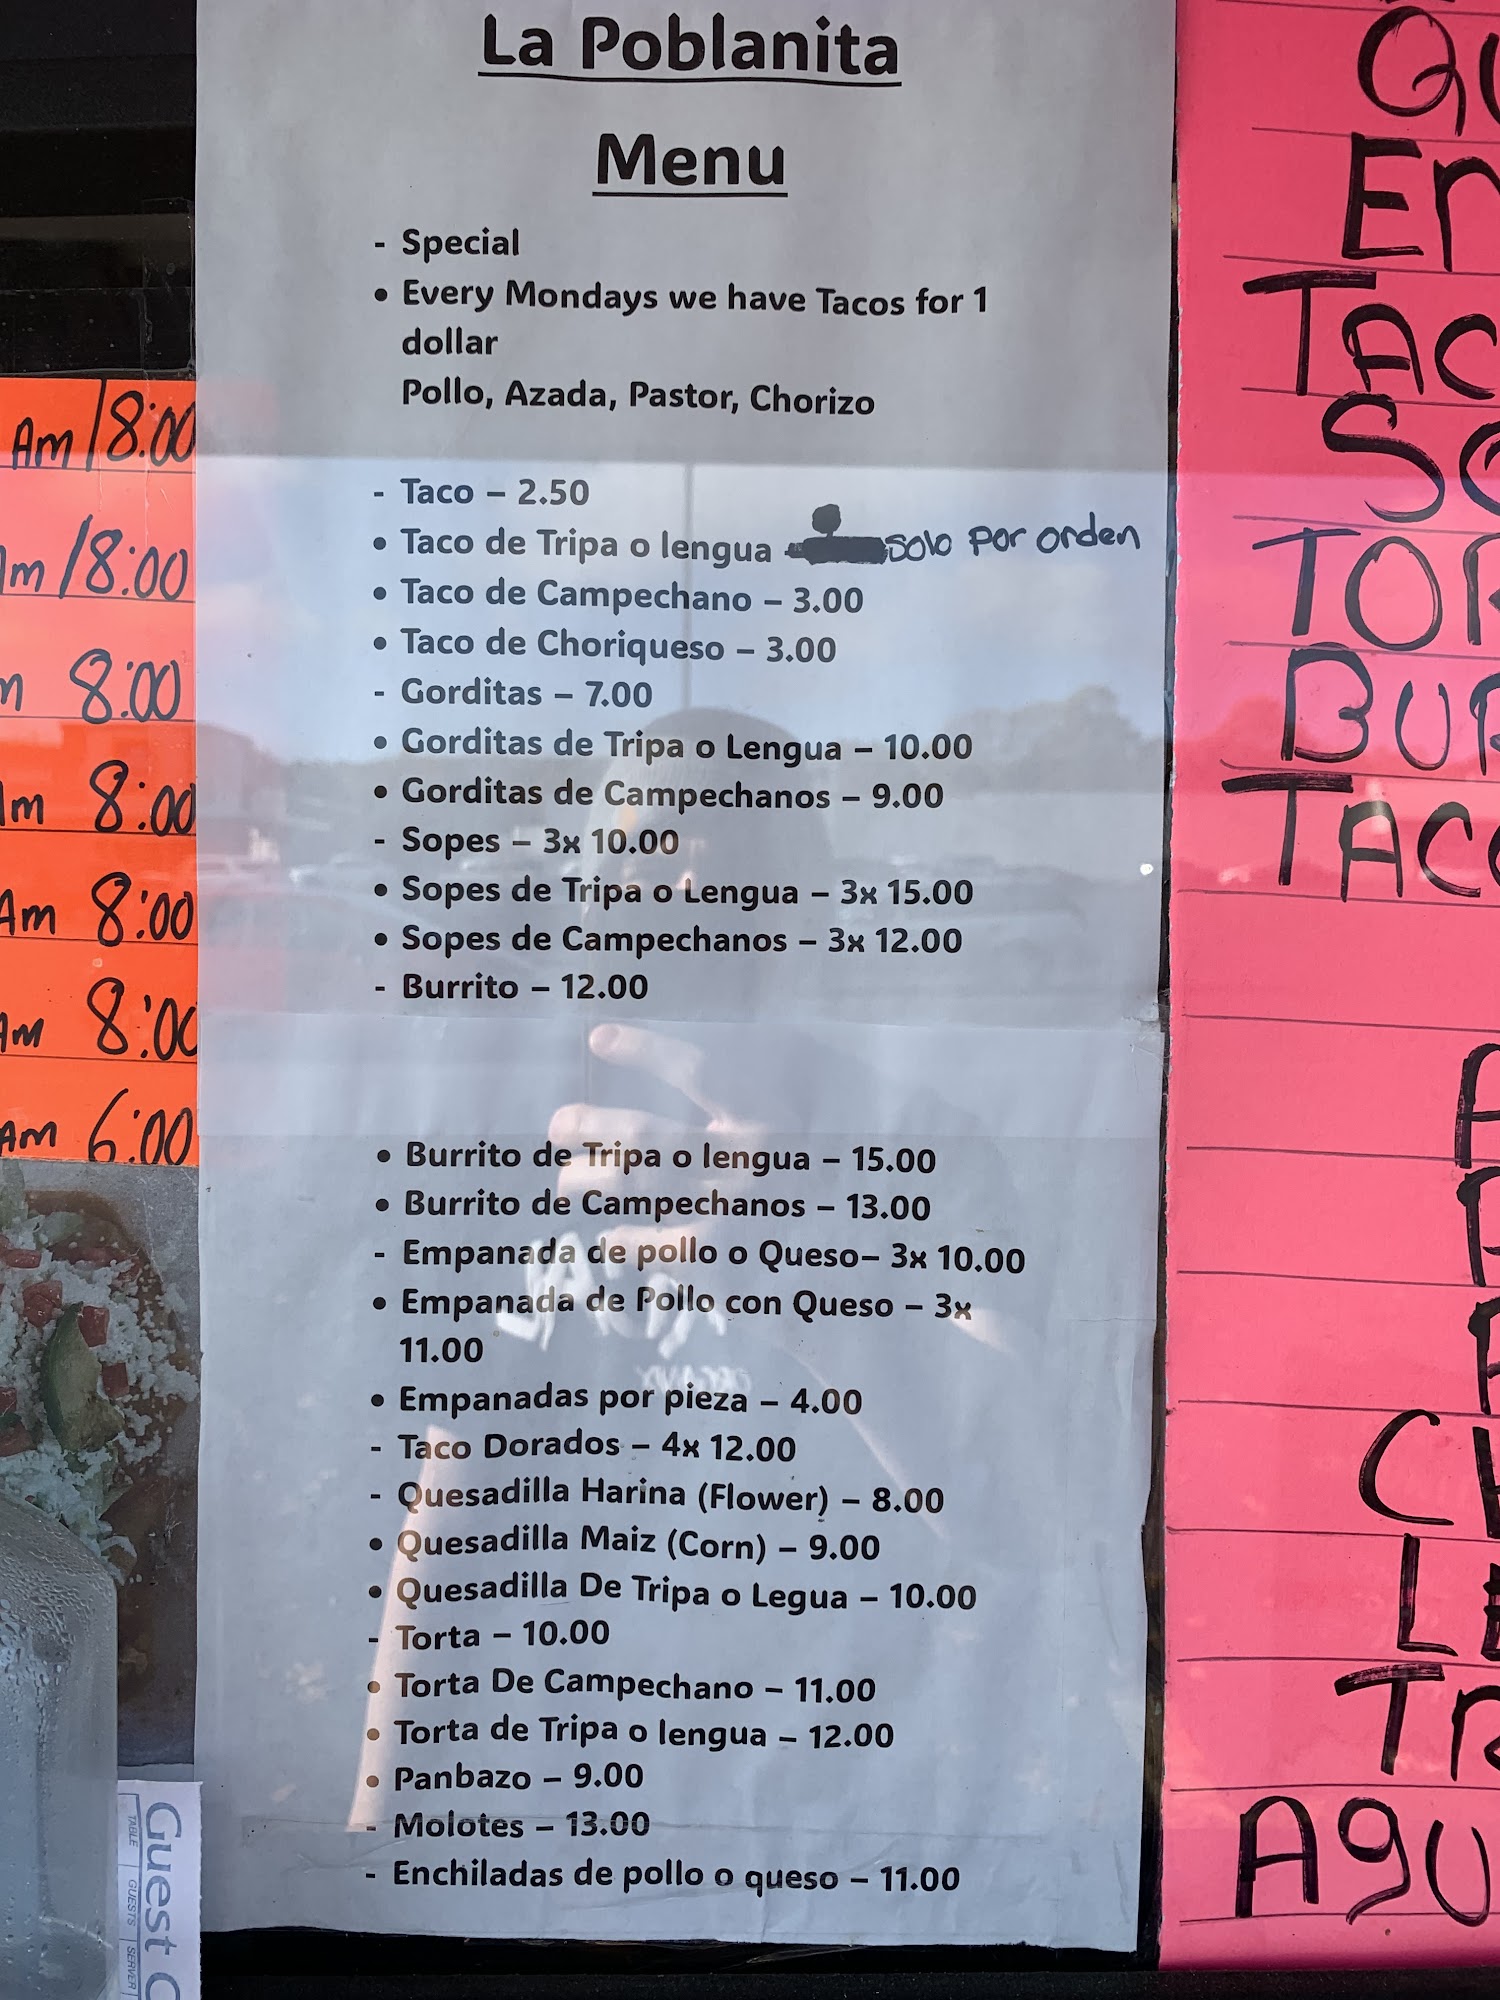 La Poblanita
Menu
- Special
• Every Mondays we have Tacos for 1
dollar
Pollo, Azada, Pastor, Chorizo
- Taco – 2.50
• Taco de Tripa o lengua - solo por orden
• Taco de Campechano – 3.00
• Taco de Choriqueso – 3.00
- Gorditas – 7.00
• Gorditas de Tripa o Lengua – 10.00
• Gorditas de Campechanos – 9.00
- Sopes – 3x 10.00
• Sopes de Tripa o Lengua – 3x 15.00
• Sopes de Campechanos – 3x 12.00
- Burrito – 12.00
• Burrito de Tripa o lengua – 15.00
• Burrito de Campechanos – 13.00
- Empanada de pollo o Queso– 3x 10.00
• Empanada de Pollo con Queso – 3x
11.00
• Empanadas por pieza – 4.00
- Taco Dorados – 4x 12.00
- Quesadilla Harina (Flower) – 8.00
• Quesadilla Maiz (Corn) – 9.00
• Quesadilla De Tripa o Legua – 10.00
- Torta – 10.00
• Torta De Campechano – 11.00
• Torta de Tripa o lengua – 12.00
• Panbazo – 9.00
- Molotes – 13.00
- Enchiladas de pollo o queso – 11.00
Am/8:00
m/8:00
m 8:00
Am 8:00
Am 8:00
Am 8:00
Am 6:00
Guest C
TABLE GUESTS SERVER
QU
En
TAC
SO
TOR
BUR
TACO
A
P
P
CE
LE
TR
AGU